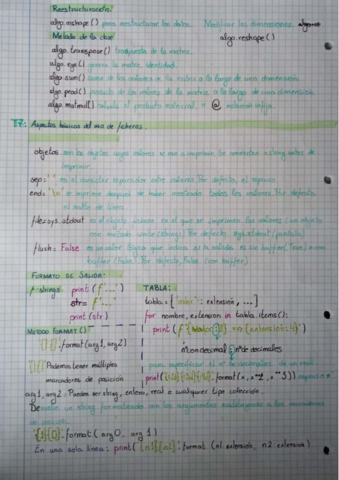 Reestructuración:
algo.reshape() para reestructurar los datos. Modificar las dimensiones.
Método de la clase algo.reshape()
algo.transpose() transpuesta de la matriz.
algo.eye() genera la matriz identidad.
algo.sum() suma de los valores de la matriz a lo largo de una dimensión.
algo.prod() producto de los valores de la matriz a lo largo de una dimensión.
algo.matmul() calcula el producto matricial. @ notación infija.
T7: Aspectos básicos del uso de ficheros.
objetos son los objetos cuyos valores se van a imprimir. Se convierten a string antes de
imprimir.
sep=' ' es el carácter separador entre valores. Por defecto, el espacio
end='\n' se imprime después de haber mostrado todos los valores. Por defecto,
el salto de línea
file=sys.stdout es el objeto fichero en el que se imprimen los valores (un objeto
con método write(string)). Por defecto sys.stdout (pantalla)
flush=False es un valor lógico que indica si la salida es sin buffer (True) o con
buffer (False). Por defecto, False (con buffer)
FORMATO DE SALIDA:
f-strings print(f'...')
str= f'...'
print(str)
TABLA:
tabla = { : extensión, ...}
for nombre, extension in tabla.items():
print(f'
nº decimales
MÉTODO FORMAT()
'{}{}'.format(arg1, arg2)
Podemos tener múltiples
marcadores de posición
arg1, arg2: Pueden ser string, entero, real o cualquier tipo colección.
Devuelve un string formateado con los argumentos
de posición.
'{1}{0}'.format(arg0, arg1)
En una sola línea: print('{n1}{n2}'.format(n1.extension, n2.extension)